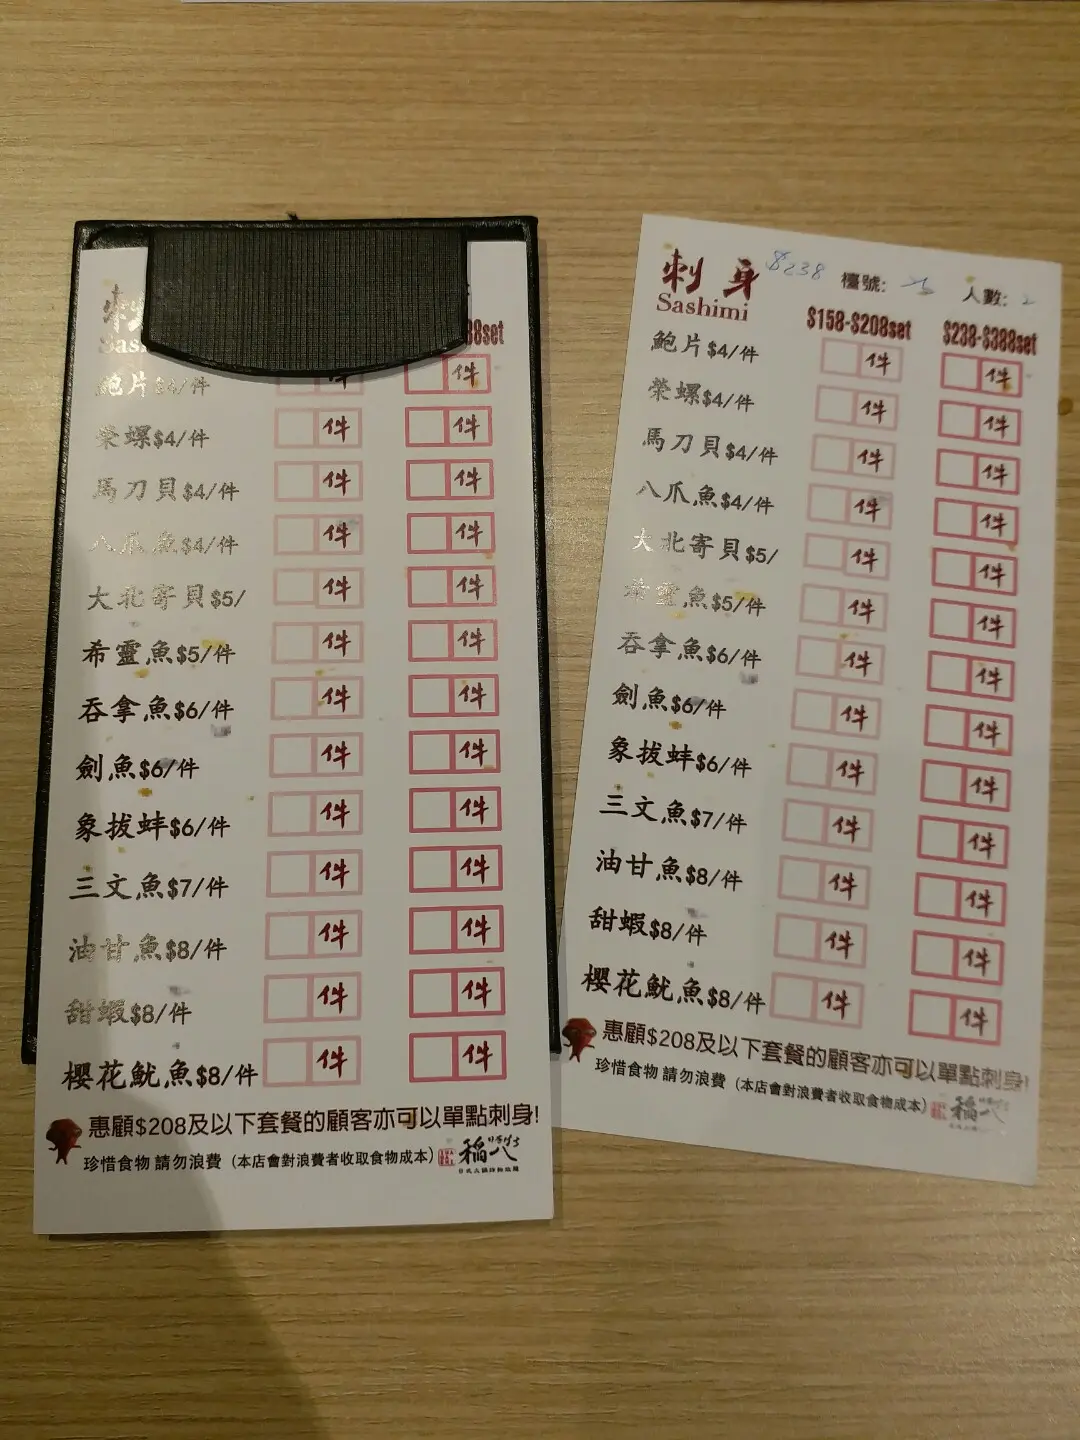 刺
Sas
88set
鮑片$4/件 件 件
榮螺$4/件 件 件
馬刀貝$4/件 件 件
八爪魚$4/件 件 件
大北寄貝$5/ 件 件
希靈魚$5/件 件 件
吞拿魚$6/件 件 件
劍魚$6/件 件 件
象拔蚌$6/件 件 件
三文魚$7/件 件 件
油甘魚$8/件 件 件
甜蝦$8/件 件 件
櫻花魷魚$8/件 件 件
惠顧$208及以下套餐的顧客亦可以單點刺身!
珍惜食物 請勿浪費 (本店會對浪費者收取食物成本) 稲八
刺身 $238 檯號: 人數: 2
Sashimi $158-$208set $238-$388set
鮑片$4/件 件 件
榮螺$4/件 件 件
馬刀貝$4/件 件 件
八爪魚$4/件 件 件
大北寄貝$5/ 件 件
希靈魚$5/件 件 件
吞拿魚$6/件 件 件
劍魚$6/件 件 件
象拔蚌$6/件 件 件
三文魚$7/件 件 件
油甘魚$8/件 件 件
甜蝦$8/件 件 件
櫻花魷魚$8/件 件 件
惠顧$208及以下套餐的顧客亦可以單點刺身!
珍惜食物 請勿浪費 (本店會對浪費者收取食物成本) 稲八